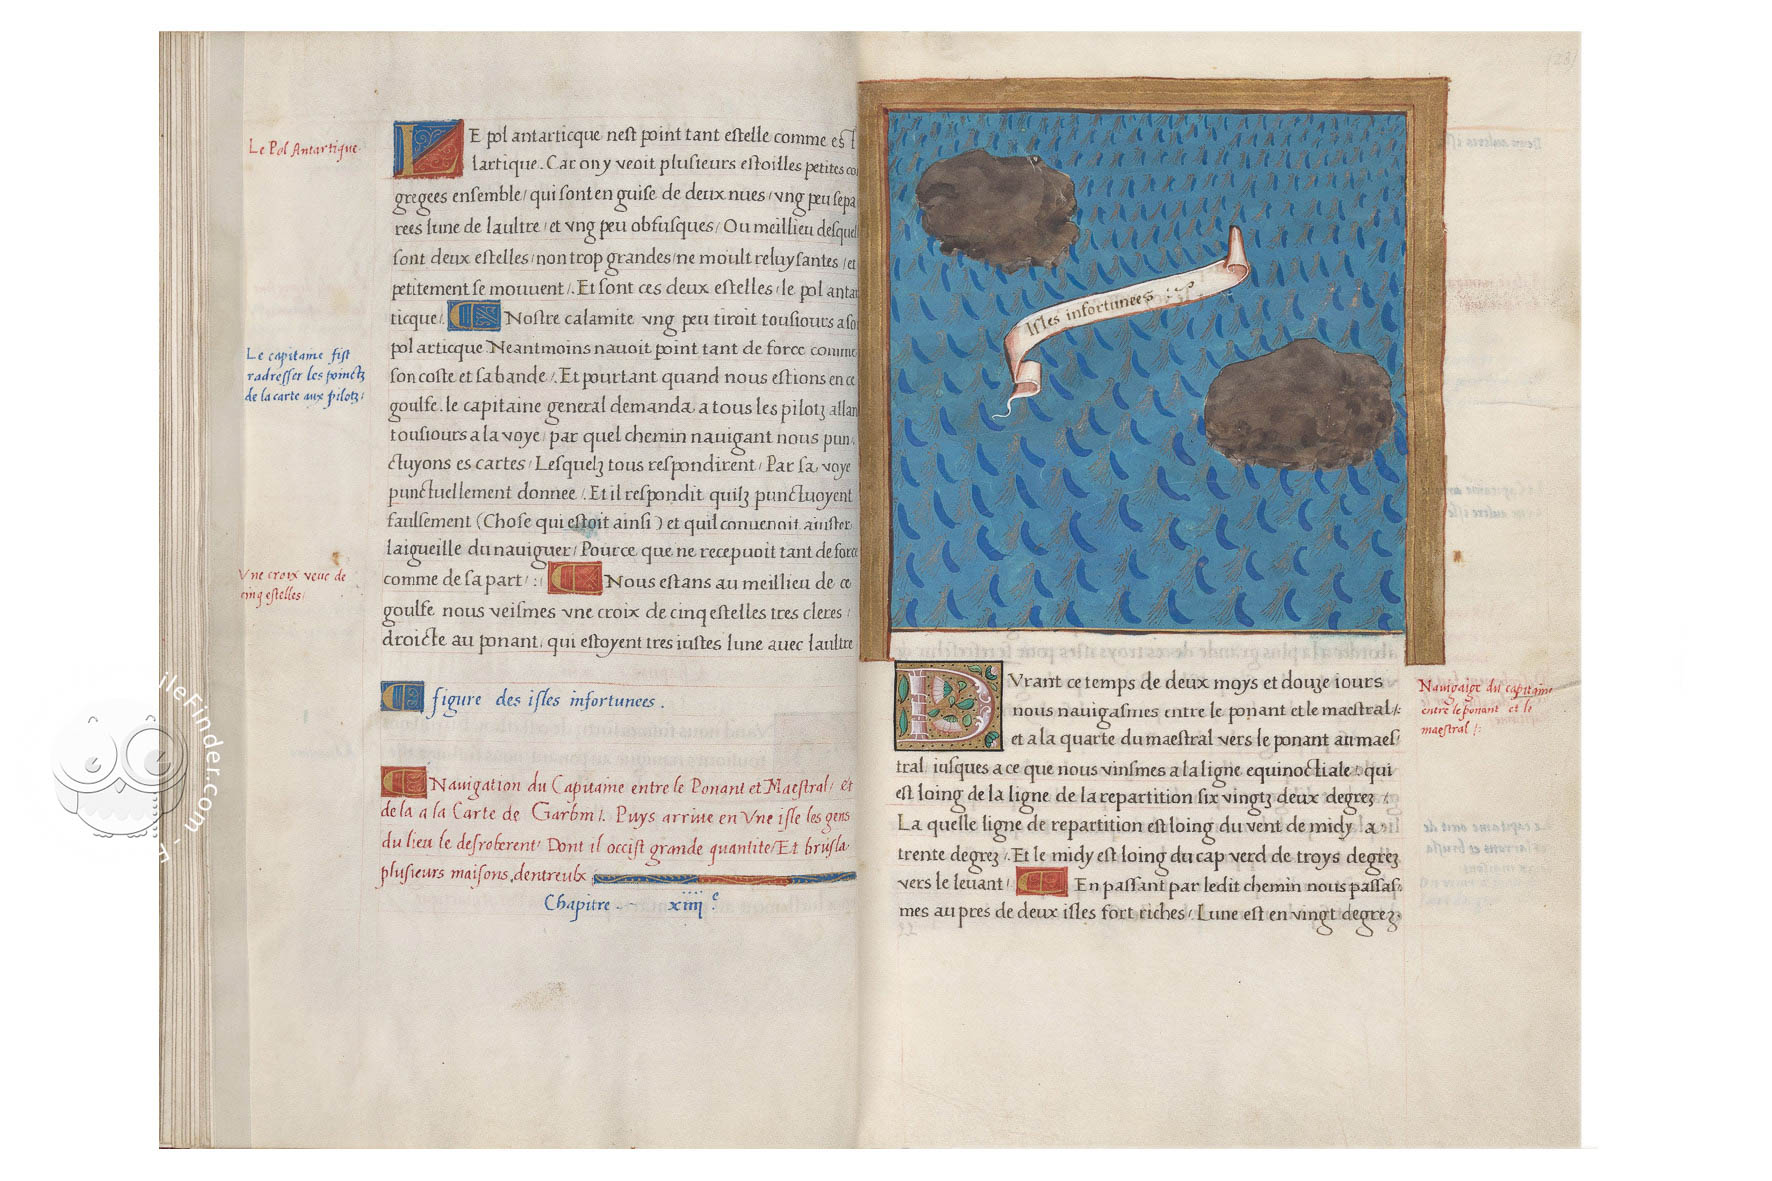 Le Pol Antartique.
LE pol antarticque nest point tant estelle comme est
lartique. Car on y veoit plusieurs estoilles petites co
gregees ensemble/ qui sont en guise de deux nues/ vng peu sepa
rees lune de laultre/ et vng peu obfusques/ Ou meillieu desquel
sont deux estelles/ non trop grandes/ ne moult reluysantes/ et
petitement se mouuent/. Et sont ces deux estelles/ le pol antar
ticque/. Nostre calamite vng peu tiroit tousiours a son
pol articque. Neantmoins nauoit point tant de force comme
son coste et sa bande/. Et pourtant quand nous estions en ce
Le capitaine fist
radresser les poinctz
de la carte aux pilotz/
goulfe. le capitaine general demanda a tous les pilotz allan
tousiours a la voye/ par quel chemin nauigant nous pun
ctuyons es cartes/ Lesquelz tous respondirent/ Par sa voye
punctuellement donnee/. Et il respondit quilz punctuoyent
faulsement (Chose qui estoit ainsi) et quil conuenoit aiuster
laigueille du nauiguer/ Pource que ne recepuoit tant de force
comme de sa part/:. Nous estans au meillieu de ce
Vne croix veue de
cinq estelles/
goulfe nous veismes vne croix de cinq estelles tres cleres/
droicte au ponant/ qui estoyent tres iustes lune auec laultre
figure des isles infortunees.
Nauigation du Capitaine entre le Ponant et Maestral/ et
de la a la Carte de Garbin/. Puys arriue en Vne isle les gens
du lieu le desroberent/ Dont il occist grande quantite/ Et brusla
plusieurs maisons dentreulx
Chapitre xiiij e.
(28)
Isles infortunees
DVrant ce temps de deux moys et douze iours
nous nauigasmes entre le ponant et le maestral/:
et a la quarte du maestral vers le ponant au maes
tral iusques a ce que nous vinsmes a la ligne equinoctiale. qui
est loing de la ligne de la repartition six vingtz deux degrez/.
La quelle ligne de repartition est loing du vent de midy a
trente degrez/. Et le midy est loing du cap verd de troys degrez
vers le leuant/ En passant par ledit chemin nous passas
mes au pres de deux isles fort riches/ Lune est en vingt degrez
Nauigaige du capitaine
entre le ponant et le
maestral/:
ileFinder.com